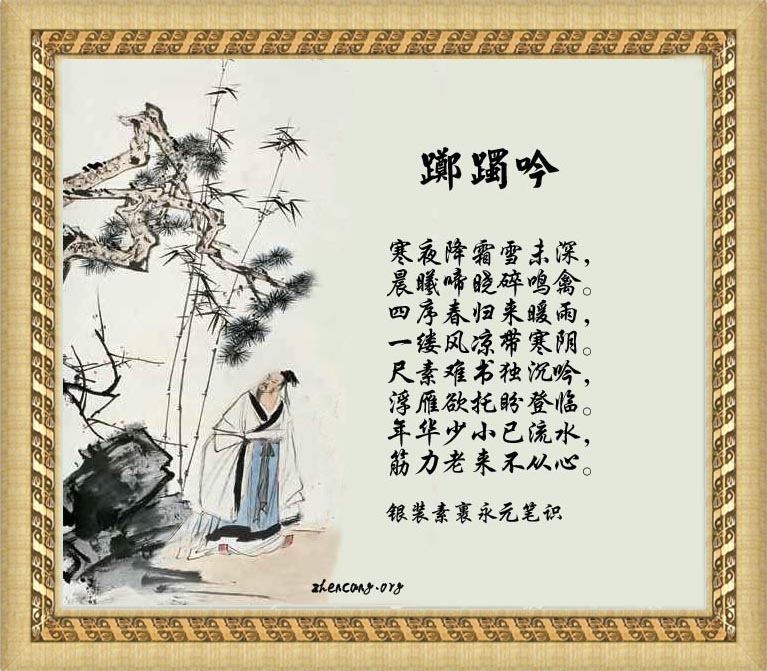 踯躅吟
寒夜降霜雪未深，
晨曦啼晓碎鸣禽。
四序春归来暖雨，
一缕风凉带寒阴。
尺素难书独沉吟，
浮雁欲托盼登临。
年华少小已流水，
筋力老来不从心。
银装素裹永元笔识
zhencang.org